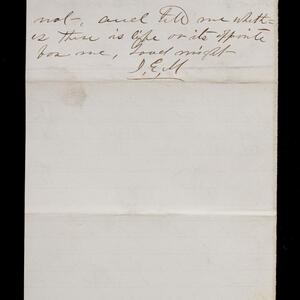 not, and tell me wheth-
er there is life or its opposite
for me, Good night
J. E. M